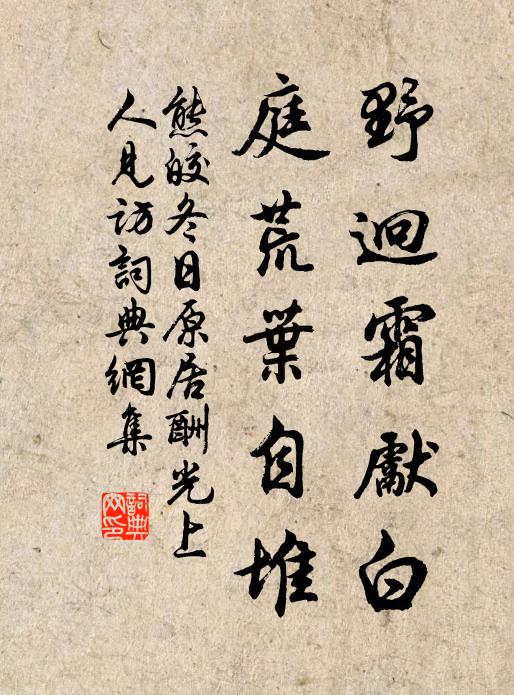 野迥霜獻白
庭荒葉自堆
熊皎冬日原居酬光上
人見訪詞典網集
詞典網印